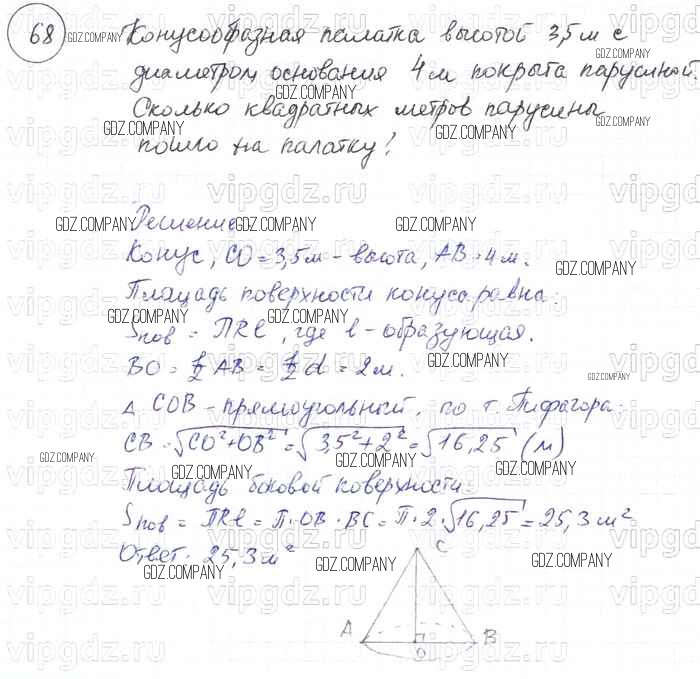 68 Конусообразная палатка высотой 3,5 м с
диаметром основания 4 м покрыта парусиной.
Сколько квадратных метров парусины
пошло на палатку?
Решение
Конус, CO = 3,5 м - высота, AB = 4 м.
Площадь поверхности конуса равна:
Sпов = ПRl, где l - образующая.
BO = 1/2 AB = 1/2 d = 2 м.
Δ COB - прямоугольный, по т. Пифагора:
CB = √CO²+OB² = √3,5²+2² = √16,25 (м)
Площадь боковой поверхности:
Sпов = ПRl = П·OB·BC = П·2·√16,25 = 25,3 м²
Ответ: 25,3 м²
C
A
B
O
GDZ.COMPANY
vipgdz.ru